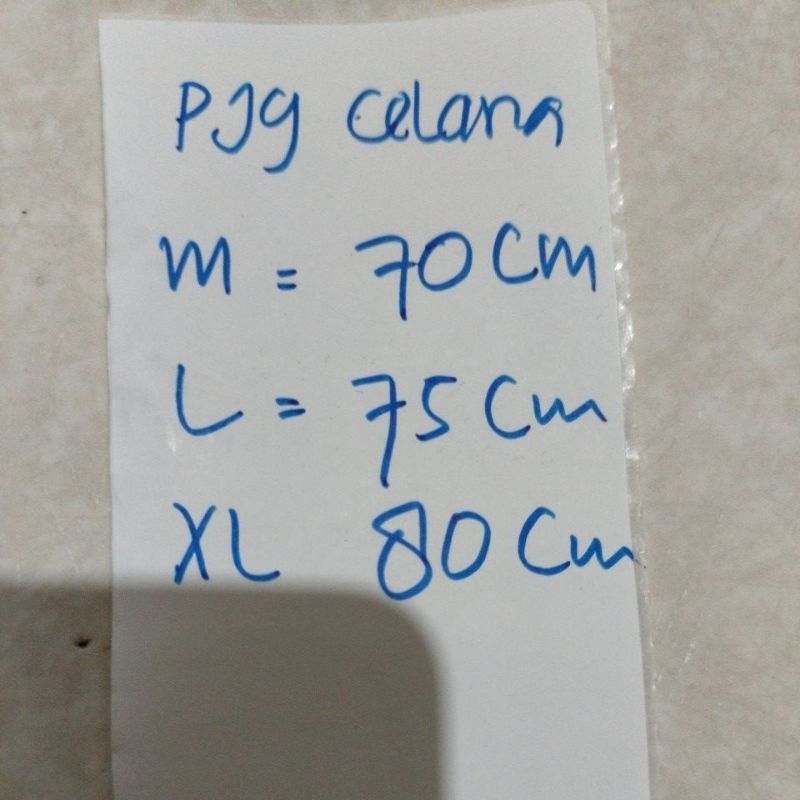 PJg celana
M = 70 cm
L = 75 cm
XL 80 cm